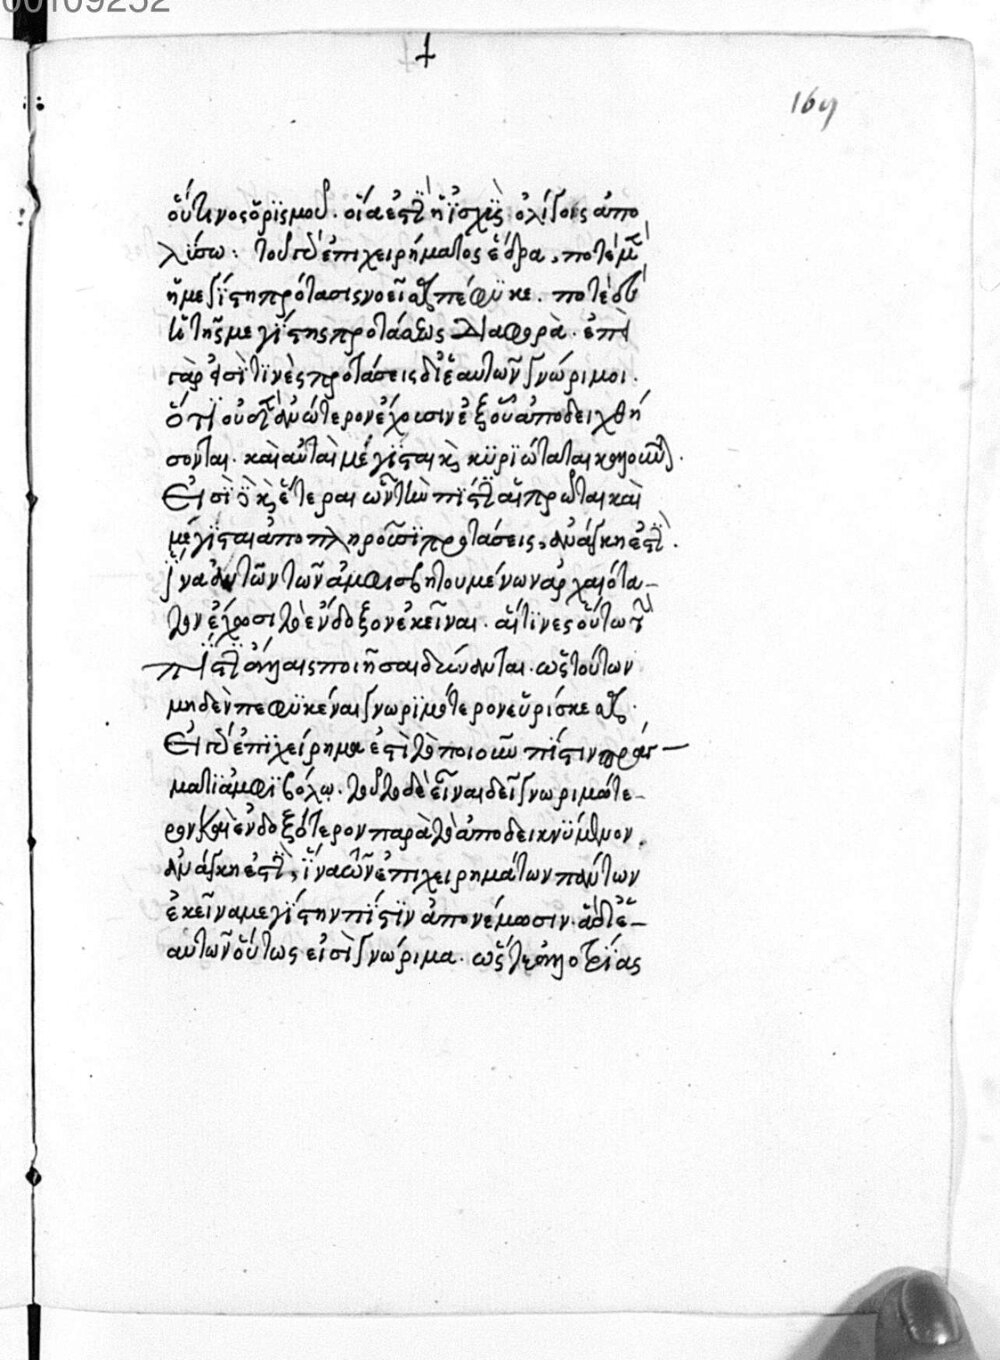 00109252
169
οὕτινος ὁρϊσμοῦ. οἵα ἐστὶ ἡ ἰσχὺς ὀλίγοις ἀπο
λύσω: τοῦ δ' ἐπιχειρήματος ἕδρα, ποτὲ μὲν
ἡ μεγίστη πρότασις νοεῖσθαι πέφϋκε. ποτὲ δὲ
τῆς μεγίστης προτάσεως διαφορὰ. ἐπεὶ
γὰρ εἰσί τϊνὲς προτάσεις δι' ἑαυτῶν γνώριμοι.
ὅτι οὐδὲν ἀνώτερον ἔχουσιν ἐξ οὗ ἀποδειχθή
σονται. καὶ αὐταὶ μέγϊσται καὶ κϋρϊώταται
Εἰσὶ δὲ καὶ ἕτεραι ὧν τὴν πίστιν αἱ πρῶται καὶ
μέγϊσται ἀποπληροῦσϊ προτάσεις, ἀνάγκη ἐστὶ.
ἵνα αὐτῶν τῶν ἀμφισβητουμένων ἀρχαιότα-
τον ἔχωσι τὸ ἔνδοξον ἐκεῖναι. αἵτϊνες οὕτω
πιστ ποιῆσαι δύνανται. ὡς τούτων
μηδὲν πεφϋκέναι γνωρϊμότερον εὑρίσκεσθαι.
Εἰ δ' ἐπϊχείρημα ἐστὶ τὸ ποιοῦν πίστιν πράγ-
ματϊ ἀμφϊβόλῳ. τοῦτο δὲ εἶναι δεῖ γνωριμώτε-
ρον καὶ ἐνδοξότερον παρὰ τὸ ἀποδεικνϋμενον.
ἀνάγκη ἐστὶ, ἵνα ὧν ἐπιχειρημάτων πάντων
ἐκεῖνα μεγίστην πίστϊν ἀπονέμωσιν. ἃ δι' ἑ-
αυτῶν οὕτως εἰσὶ γνώριμα. ὡς